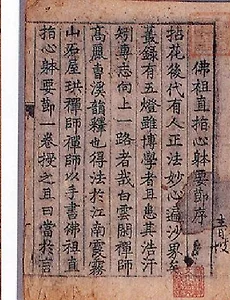 佛祖直指心躰要節序
拈花後代有人正法妙心遍沙界矣
叢録有五燈雖博學者且患其浩汗
矧專志向上一路者哉白雲閣禪師
高麗曹溪韻釋也得法於江南霞霧
山石屋珙禪師禪師以手書佛祖直
指心躰要節一卷授之且曰當於言